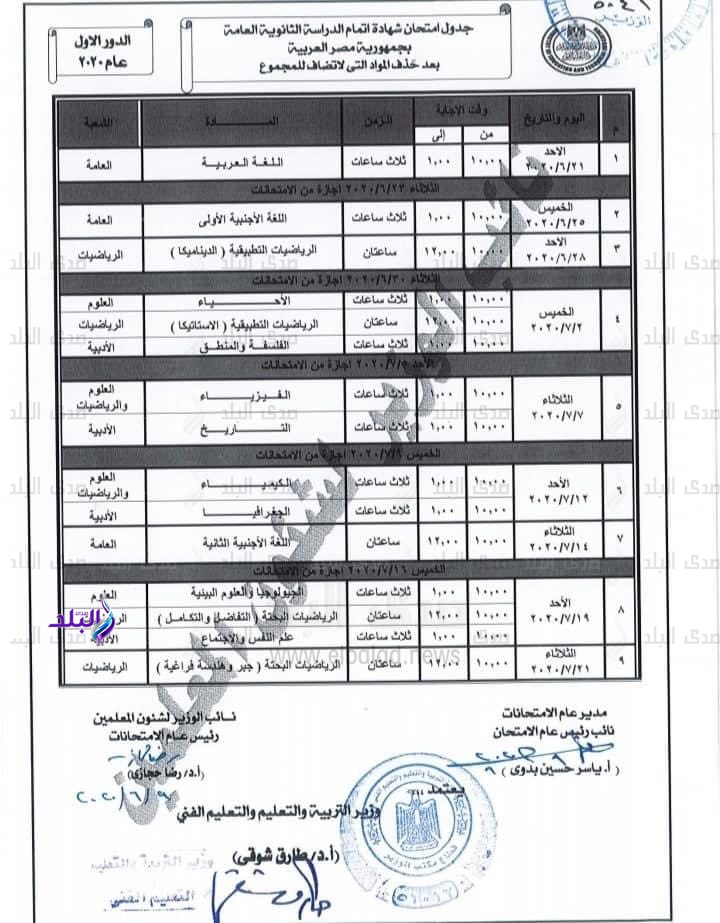 جدول امتحان شهادة اتمام الدراسة الثانوية العامة
بجمهورية مصر العربية
بعد حذف المواد التى لا تضاف للمجموع
الدور الاول
عام ٢٠٢٠
م اليوم والتاريخ وقت الاجابة الزمن المـــــادة الشعبة
من إلى
١ الاحد ٢٠٢٠/٦/٢١ ١٠,٠٠ ١,٠٠ ثلاث ساعات اللغة العربية العامة
الثلاثاء ٢٠٢٠/٦/٢٣ اجازة من الامتحانات
٢ الخميس ٢٠٢٠/٦/٢٥ ١٠,٠٠ ١,٠٠ ثلاث ساعات اللغة الأجنبية الأولى العامة
٣ الاحد ٢٠٢٠/٦/٢٨ ١٠,٠٠ ١٢,٠٠ ساعتان الرياضيات التطبيقية ( الديناميكا ) الرياضيات
الثلاثاء ٢٠٢٠/٦/٣٠ اجازة من الامتحانات
٤ الخميس ٢٠٢٠/٧/٢ ١٠,٠٠ ١,٠٠ ثلاث ساعات الأحيـــاء العلوم
١٠,٠٠ ١٢,٠٠ ساعتان الرياضيات التطبيقية ( الاستاتيكا ) الرياضيات
١٠,٠٠ ١,٠٠ ثلاث ساعات الفلسفة والمنطق الأدبية
الأحد ٢٠٢٠/٧/٥ اجازة من الامتحانات
٥ الثلاثاء ٢٠٢٠/٧/٧ ١٠,٠٠ ١,٠٠ ثلاث ساعات الفيزيـــاء العلوم والرياضيات
١٠,٠٠ ١,٠٠ ثلاث ساعات التـــاريخ الأدبية
الخميس ٢٠٢٠/٧/٩ اجازة من الامتحانات
٦ الأحد ٢٠٢٠/٧/١٢ ١٠,٠٠ ١,٠٠ ثلاث ساعات الكيميـــاء العلوم والرياضيات
١٠,٠٠ ١,٠٠ ثلاث ساعات الجغرافيـــا الأدبية
٧ الثلاثاء ٢٠٢٠/٧/١٤ ١٠,٠٠ ١٢,٠٠ ساعتان اللغة الأجنبية الثانية العامة
الخميس ٢٠٢٠/٧/١٦ اجازة من الامتحانات
٨ الأحد ٢٠٢٠/٧/١٩ ١٠,٠٠ ١,٠٠ ثلاث ساعات الجيولوجيا والعلوم البيئية العلوم
١٠,٠٠ ١٢,٠٠ ساعتان الرياضيات البحتة ( التفاضل والتكامل )
١٠,٠٠ ١,٠٠ ثلاث ساعات علم النفس والاجتماع الأدبية
٩ الثلاثاء ٢٠٢٠/٧/٢١ ١٠,٠٠ ١٢,٠٠ ساعتان الرياضيات البحتة ( جبر وهندسة فراغية ) الرياضيات
مدير عام الامتحانات
نائب رئيس عام الامتحان
( أ. ياسر حسين بدوى )
نائب الوزير لشئون المعلمين
رئيس عام الامتحانات
(أ.د/ رضا حجازى)
٢٠٢٠/٦/٩
يعتمد ,,,
وزير التربية والتعليم والتعليم الفني
(أ.د/ طارق شوقى)
وزير التربية والتعليم
التعليم الفنى
صدى البلد
www.elbalad.news
نائب الوزير لشئون المعلمين